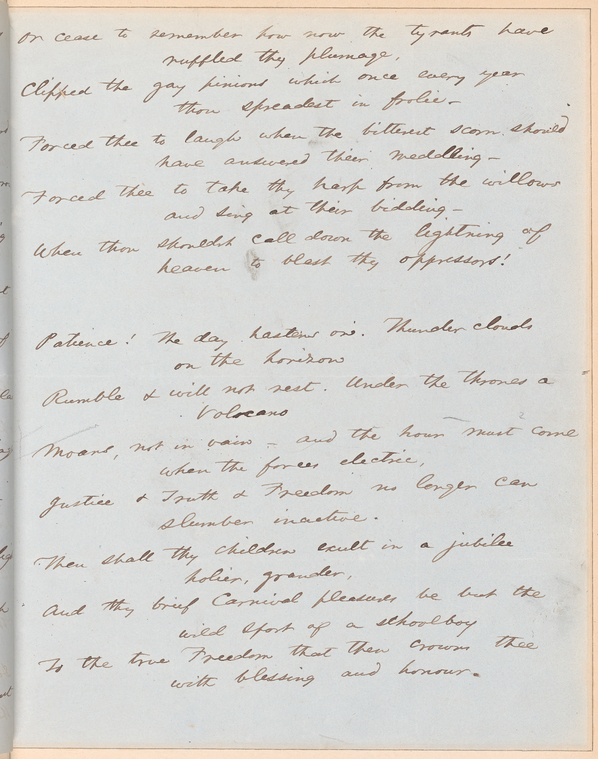 Or cease to remember how now the tyrants have
ruffled thy plumage,
Clipped the gay pinions which once every year
thou spreadest in frolic –
Forced thee to laugh when the bitterest scorn should
have answered their meddling –
Forced thee to take thy harp from the willows
and sing at their bidding –
When thou shouldst call down the lightning of
heaven to blast thy oppressors!
Patience! The day hastens on. Thunder clouds
on the horizon
Rumble & will not rest. Under the thrones a
Volocano
Moans, not in vain – and the hour must come
when the forces electric,
Justice & Truth & Freedom no longer can
slumber inactive.
Then shall thy children exult in a jubilee
holier, grander,
And thy brief Carnival pleasures be but the
wild sport of a schoolboy
To the true Freedom that then crowns thee
with blessing and honour.